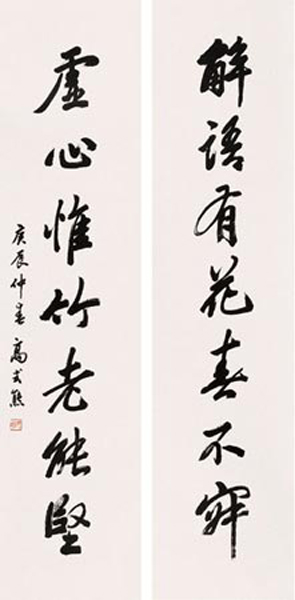 解語有花春不
虛心惟竹老能堅
庚辰仲春 高式熊